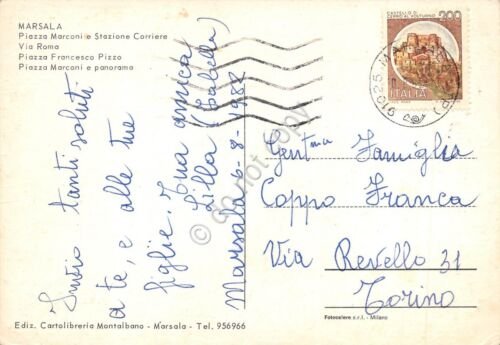 MARSALA
Piazza Marconi e Stazione Corriere
Via Roma
Piazza Francesco Pizzo
Piazza Marconi e panorama
Invio tanti saluti
a te, e alle tue
figlie. Tua amica
Lilla (Isabella)
Marsala 6-8-1988
CASTELLO DI
CERRO AL VOLTURNO
200
ITALIA
91025 MA
Gent.ma Famiglia
Coppo Franca
Via Revello 31
Torino
Ediz. Cartolibreria Montalbano - Marsala - Tel. 956966
Fotocelere s.r.l. - Milano
do not copy